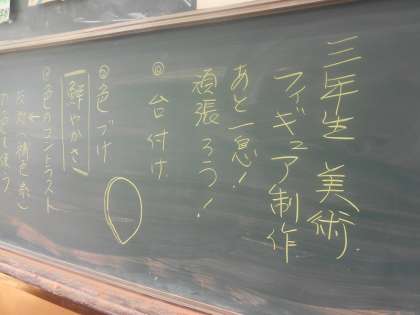 三年生 美術
フィギュア制作
あと一息!
頑張ろう!
◎台付け
◎色づけ
鮮やかさ
◎色のコントラスト
反対の補色系
の色も使う